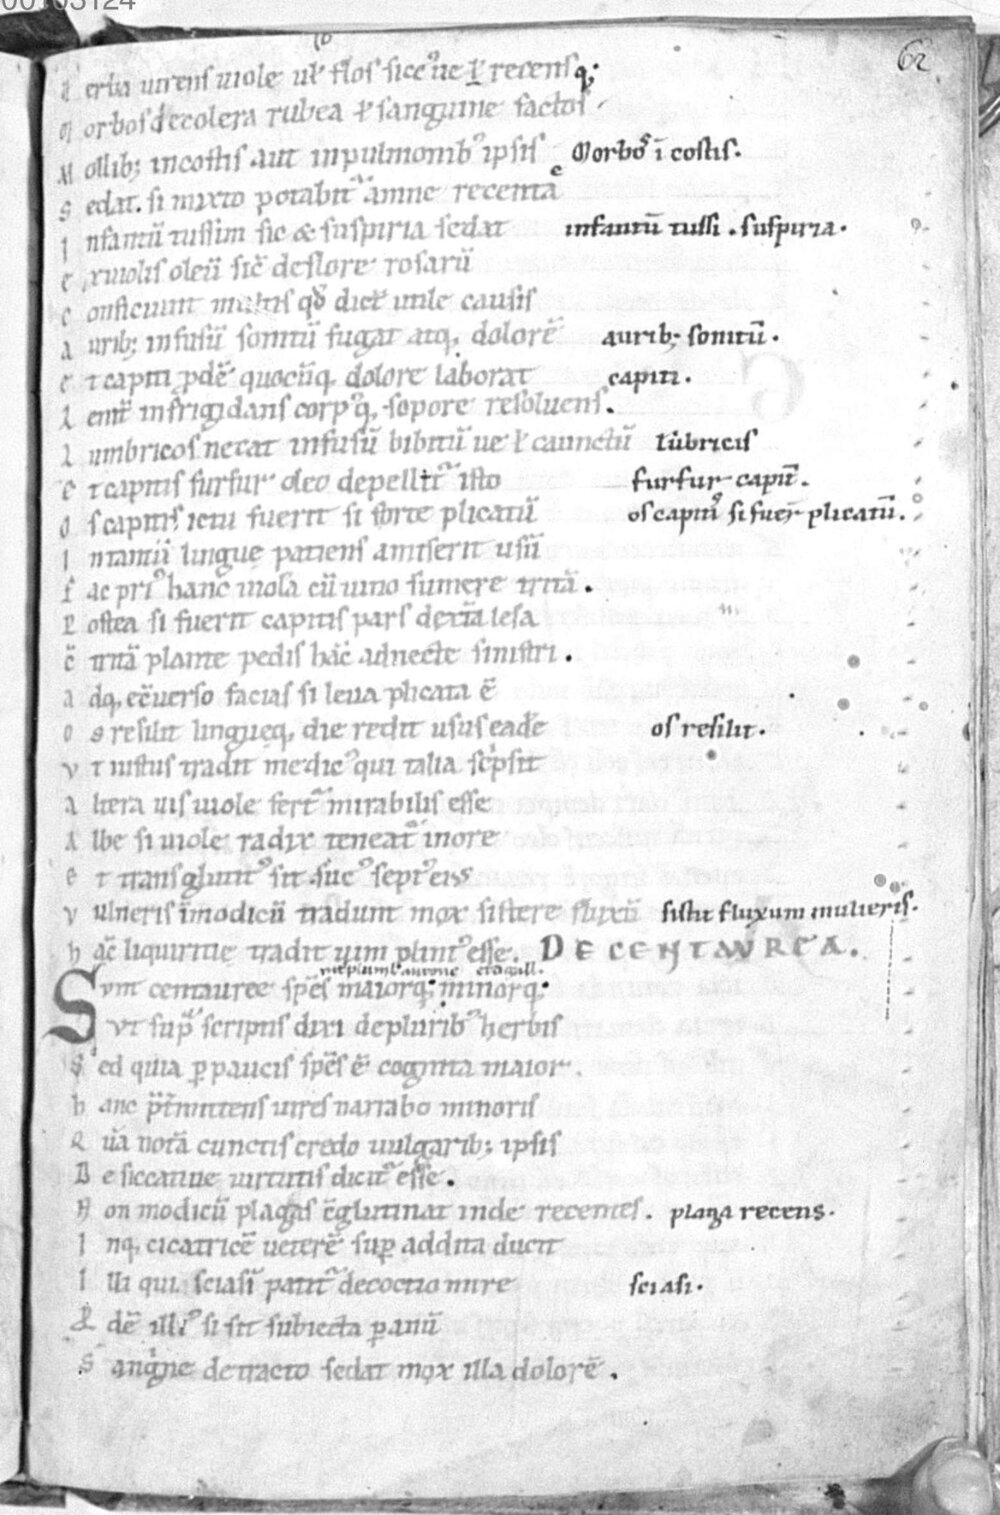 00103124
62
h erba uirens uiole uł flos siccꝰ ue ł recensq;
M orbos de colera rubea ⁊ sanguine factos
M ollib; in costis aut in pulmonibꝰ ipsis Morboſ ī costis.
S edat. si mixto potabit᷑ amne recentē
I nfantū tussim sic & suspiria sedat infantū tussi . suspiria.
E x uiolis oleū sic̄ de flore rosarū
C onficiunt multis qđ dicit᷑ utile causis
A urib; infusū sonitū fugat atq, dolorē aurib; sonitū.
E t capiti ꝓdē quocūq, dolore laborat capiti.
L enit᷑ infrigidans corpꝰq, sopore resoluens.
L umbricos necat infusū bibitū ue ł cū unctū lūbricis
E t capitis furfur oleo depellit᷑ isto furfur capit̄.
O s capitis ictu fuerit si forte plicatū os capitꝰ si fuer̄ plicatū.
I ntantū lingue patiens amiserit usū
F ac priꝰ hanc uiola cū uino sumere t̄tā.
P ostea si fuerit capitis pars dextra lesa
C̄ t̄tā plante pedis hāc adnecte sinistri.
A dq, ec̄uerso facias si leua plicata ē
O s resilit lingueq, die redit usus eadē os resilit.
V t iustus tradit medicꝰ qui talia scp̄sit
A ltera uis uiole fert᷑ mirabilis esse
A lbe si uiole radix teneat᷑ in ore
E t transglutitꝰ sit sucꝰ sepꝰ eius
V ulneris īmodicū tradunt mox sistere fluxū sistit fluxum mulieris.
H āc liquiritie tradit uim pliniꝰ esse. DE CENTAVREA.
S unt centauree spēs maiorq; minorq;
V t suꝑ scriptis dixi de pluribꝰ herbis
S ed quia ꝑ paucis spēs ē cognita maior.
H anc p̄t̄mittens uires narrabo minoris
Q uā notā cunctis credo uulgarib; ipsis
D e siccatiue uirtutis dicit᷑ esse.
N on modicū plagas c̄glutinat inde recentes. plaga recens.
I nq, cicatricē ueterē suꝑ addita ducit
I lli qui sciasī patit᷑ decoctio mire sciasi.
P dē illiꝰ si sit subiecta ꝑ anū
S anguine detracto sedat mox illa dolorē.